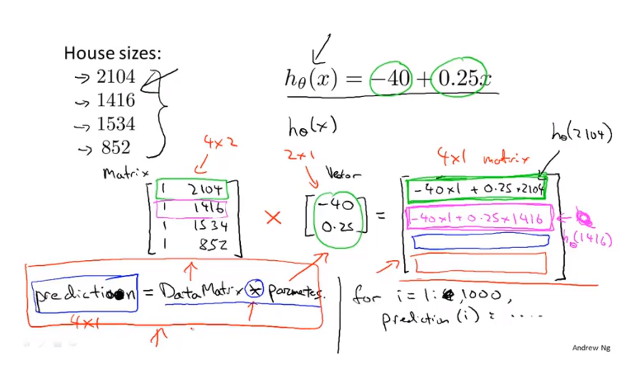 House sizes:
→ 2104
→ 1416
→ 1534
→ 852
hθ(x) = −40 + 0.25x
hθ(x)
hθ(2104)
Matrix
4×2
2×1
Vector
4×1 matrix
1 2104
1 1416
1 1534
1 852
×
−40
0.25
=
−40×1 + 0.25×2104
−40×1 + 0.25×1416
hθ(1416)
prediction = DataMatrix * parameters.
4×1
for i = 1:1000,
prediction(i) = ....
Andrew Ng